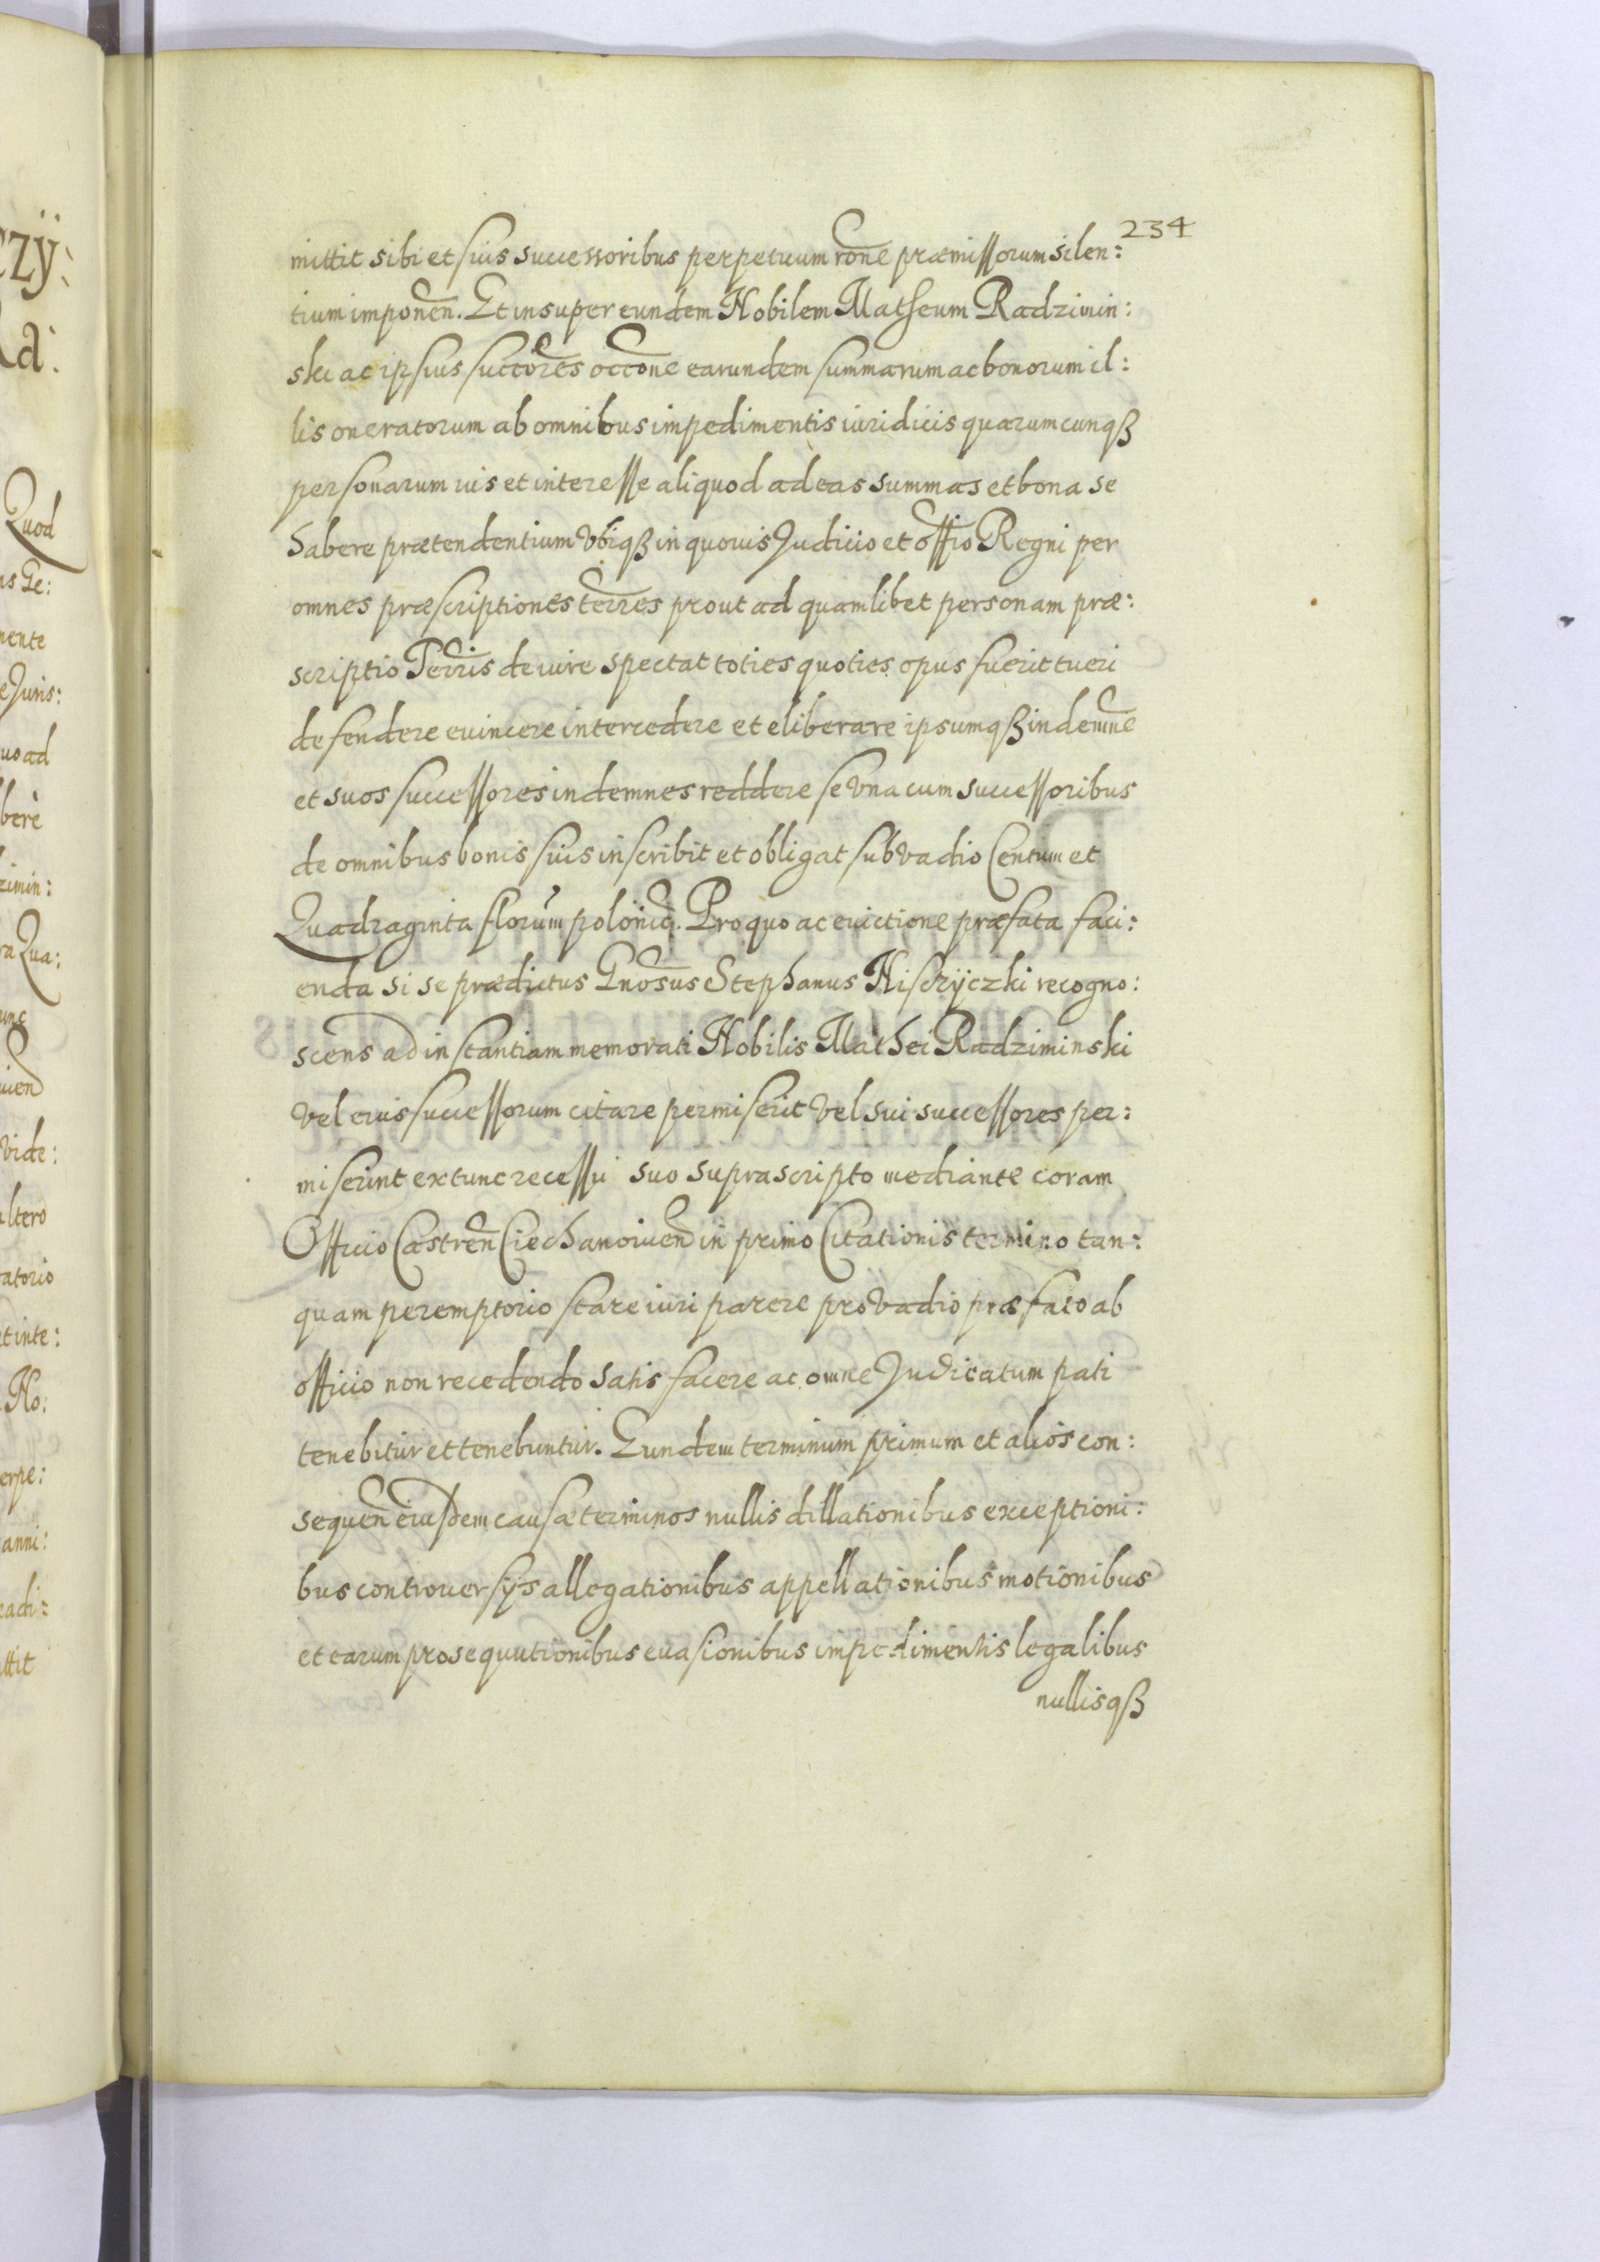 234
mittit sibi et suis successoribus perpetuum rōne præmissorum silen:
tium imponēn. Et insuper eundem Nobilem Matheum Radzimin:
ski ac ipsius succōres occōne earundem summarum ac bonorum il:
lis oneratorum ab omnibus impedimentis iuridicis quarumcunqß
personarum ius et interesse aliquod ad eas summas et bona se
habere prætendentium Vbiqß in quouis Judicio et offio Regni per
omnes præscriptiones terres prout ad quamlibet personam præ:
scriptio Terris de iure spectat toties quoties opus fuerit tueri
defendere euincere intercedere et eliberare ipsumqß indemne
et suos successores indemnes reddere se Vna cum successoribus
de omnibus bonis suis inscribit et obligat sub Vadio Centum et
Quadraginta florum polonic. Pro quo ac euictione præfata faci:
enda si se prædictus Gnosus Stephanus Niscżyczki recogno:
scens ad instantiam memorati Nobilis Mathei Radziminski
Vel eius successorum citare permiserit Vel sui successores per:
miserint extunc recessu suo suprascripto mediante coram
Officio Castren Ciechanouien in primo Citationis termino tan:
quam peremptorio stare iuri parere pro Vadio præfato ab
officio non recedendo satisfacere ac omne Judicatum pati
tenebitur et tenebuntur. Eundem terminum primum et alios con:
sequen eiusdem causæ terminos nullis dillationibus exceptioni:
bus controuersijs allegationibus appellationibus motionibus
et earum prosequutionibus euasionibus impedimentis legalibus
nullisqß